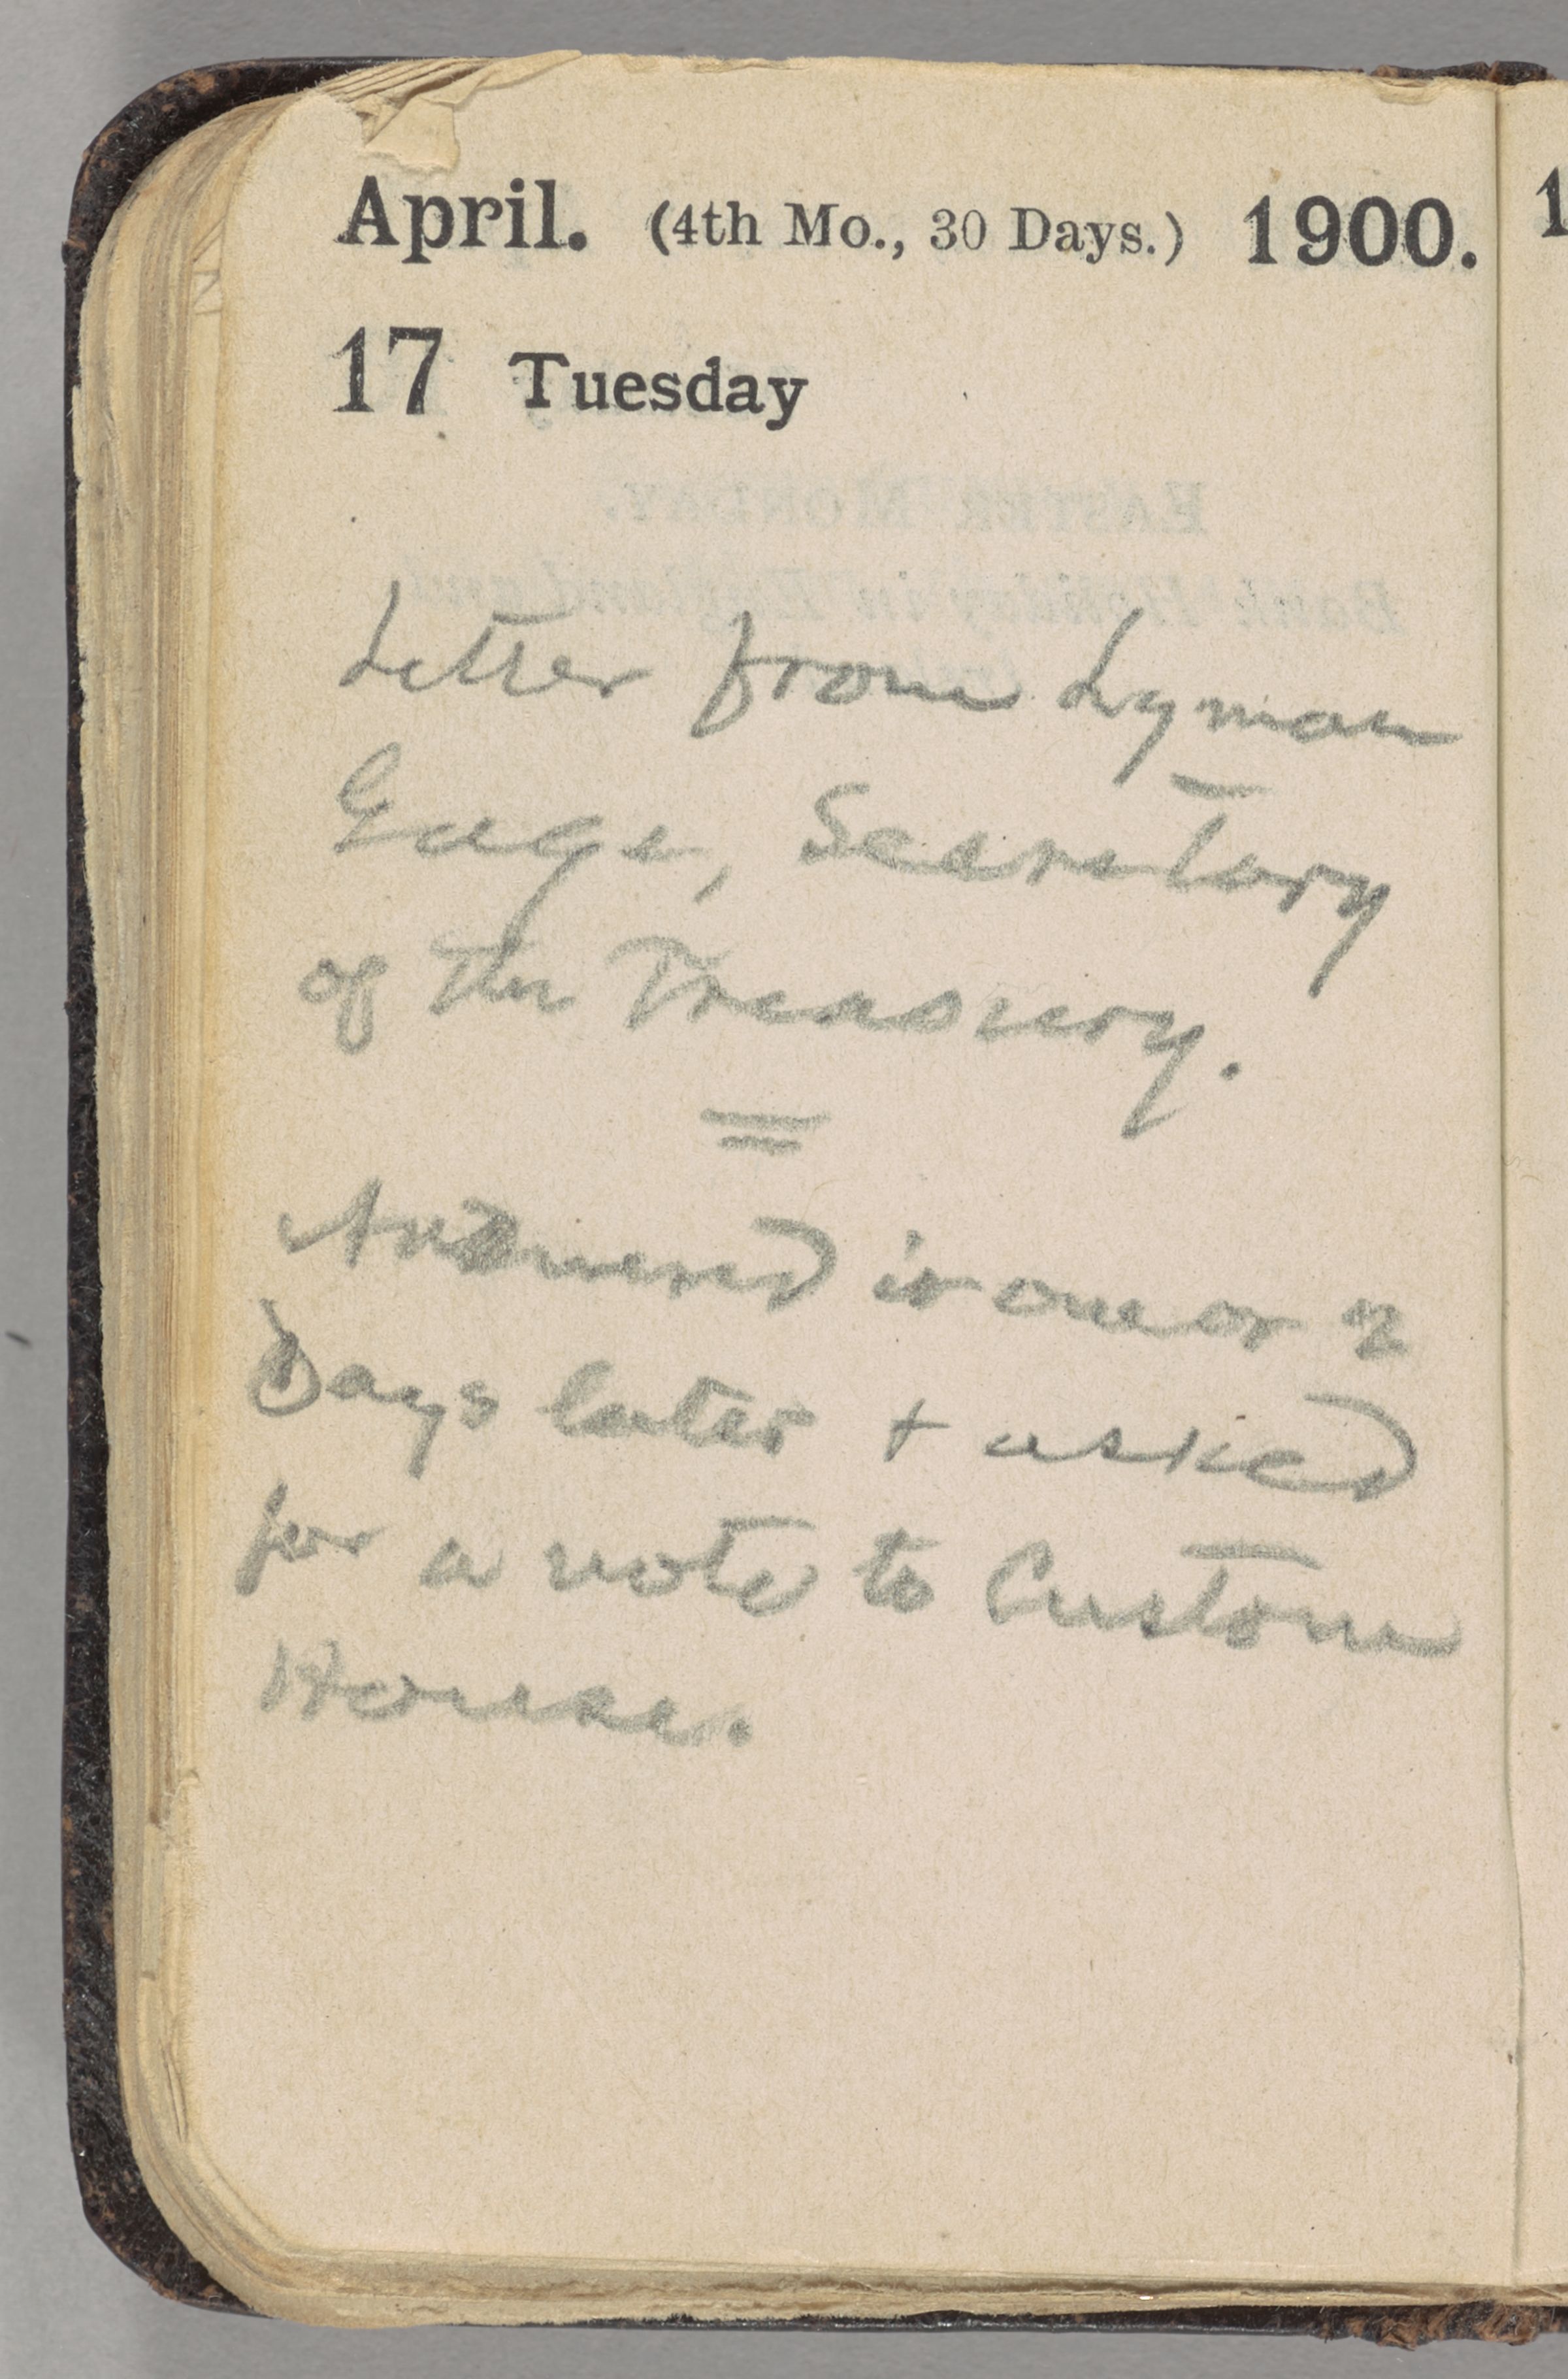 April. (4th Mo., 30 Days.) 1900.
17 Tuesday
Letter from Lyman
Gage, Secretary
of the Treasury.
=
Answered it one or 2
Days later + asked
for a note to Custom
House.